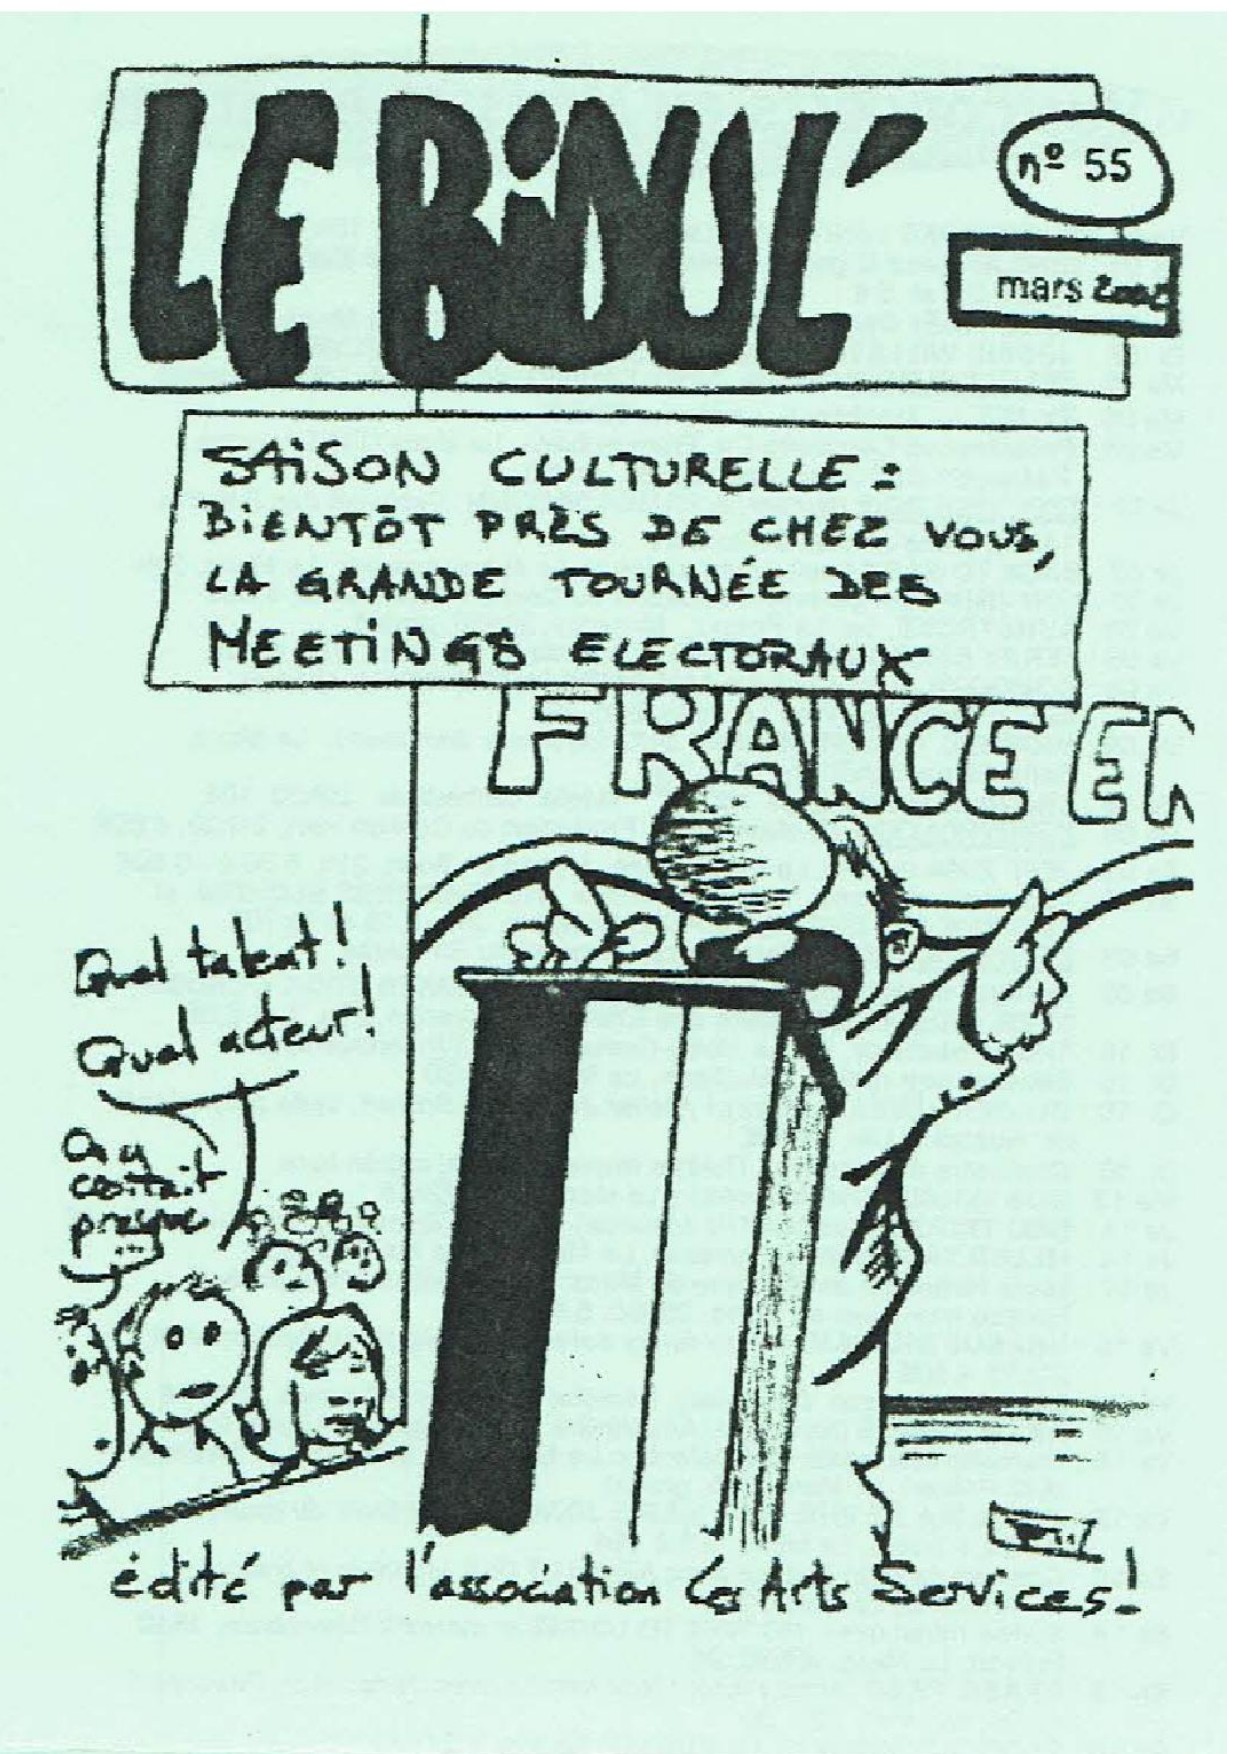 LE BiDUL'
nº 55
mars 2002
SAiSON CULTURELLE :
BiENTÔT PRÈS DE CHEZ VOUS,
LA GRANDE TOURNÉE DES
MEETiNGS ELECTORAUX
FRANCE EN
Quel talent !
Quel acteur !
On y
croirait
presque
...
édité par l'association Les Arts Services !